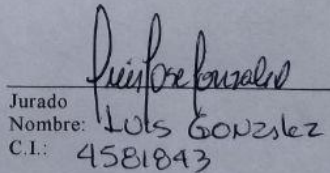 Luis Jose Gonzalez
Jurado
Nombre: LUIS GONZalEZ
C.I.: 4581843